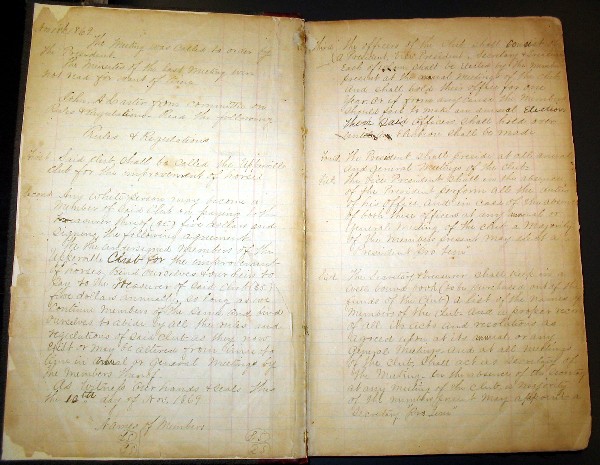 The Meeting was called to order by
the President
The minutes of the last meeting was
not read for want of time
John A Carter from committee on
Rules & Regulations Read the following
Rules & Regulations
First Said Club shall be called the
Club for the improvement of horses
Second Any white person may become a
member of said Club on paying to the
Treasurer thereof five dollars and
signing the following agreement
We the undersigned members of the
Club for the improvement
of horses, bind ourselves & our heirs to
pay to the Treasurer of said Club
five dollars annually, so long as we
continue members of the same and bind
ourselves to abide by all the rules and
regulations of said Club as they now
exist or may be altered from time to
time in annual or General Meetings of
the members thereof
As Witness our hands & seals this
the 12th day of Nov. 1869
Names of Members
Third The officers of the Club shall consist of
a President, Vice President, Secretary &
shall be elected by the members
present at the annual meetings of the Club
and shall hold their office for one
year or if from any cause the members
should fail to make an annual Election
these said officers shall hold over
until an election shall be made
The President shall preside at all annual
and General Meetings of the Club.
The Vice President shall in the absence
of the President perform all the duties
of his office and in case of the absence
of both these officers at any annual or
General Meeting of the club a majority
of the members present may elect a
President "pro tem"
The Secretary & Treasurer shall keep in a
well bound book (to be purchased out of the
funds of the Club) a list of the names of
members of the Club and a proper record
of all its acts and resolutions as
agreed upon at its annual or any
General Meetings and at all meetings
of the Club shall act as Secretary of
the Meeting. In the absence of the Secretary
at any meeting of the Club, a majority
of the members present may appoint a
Secretary "Pro Tem"